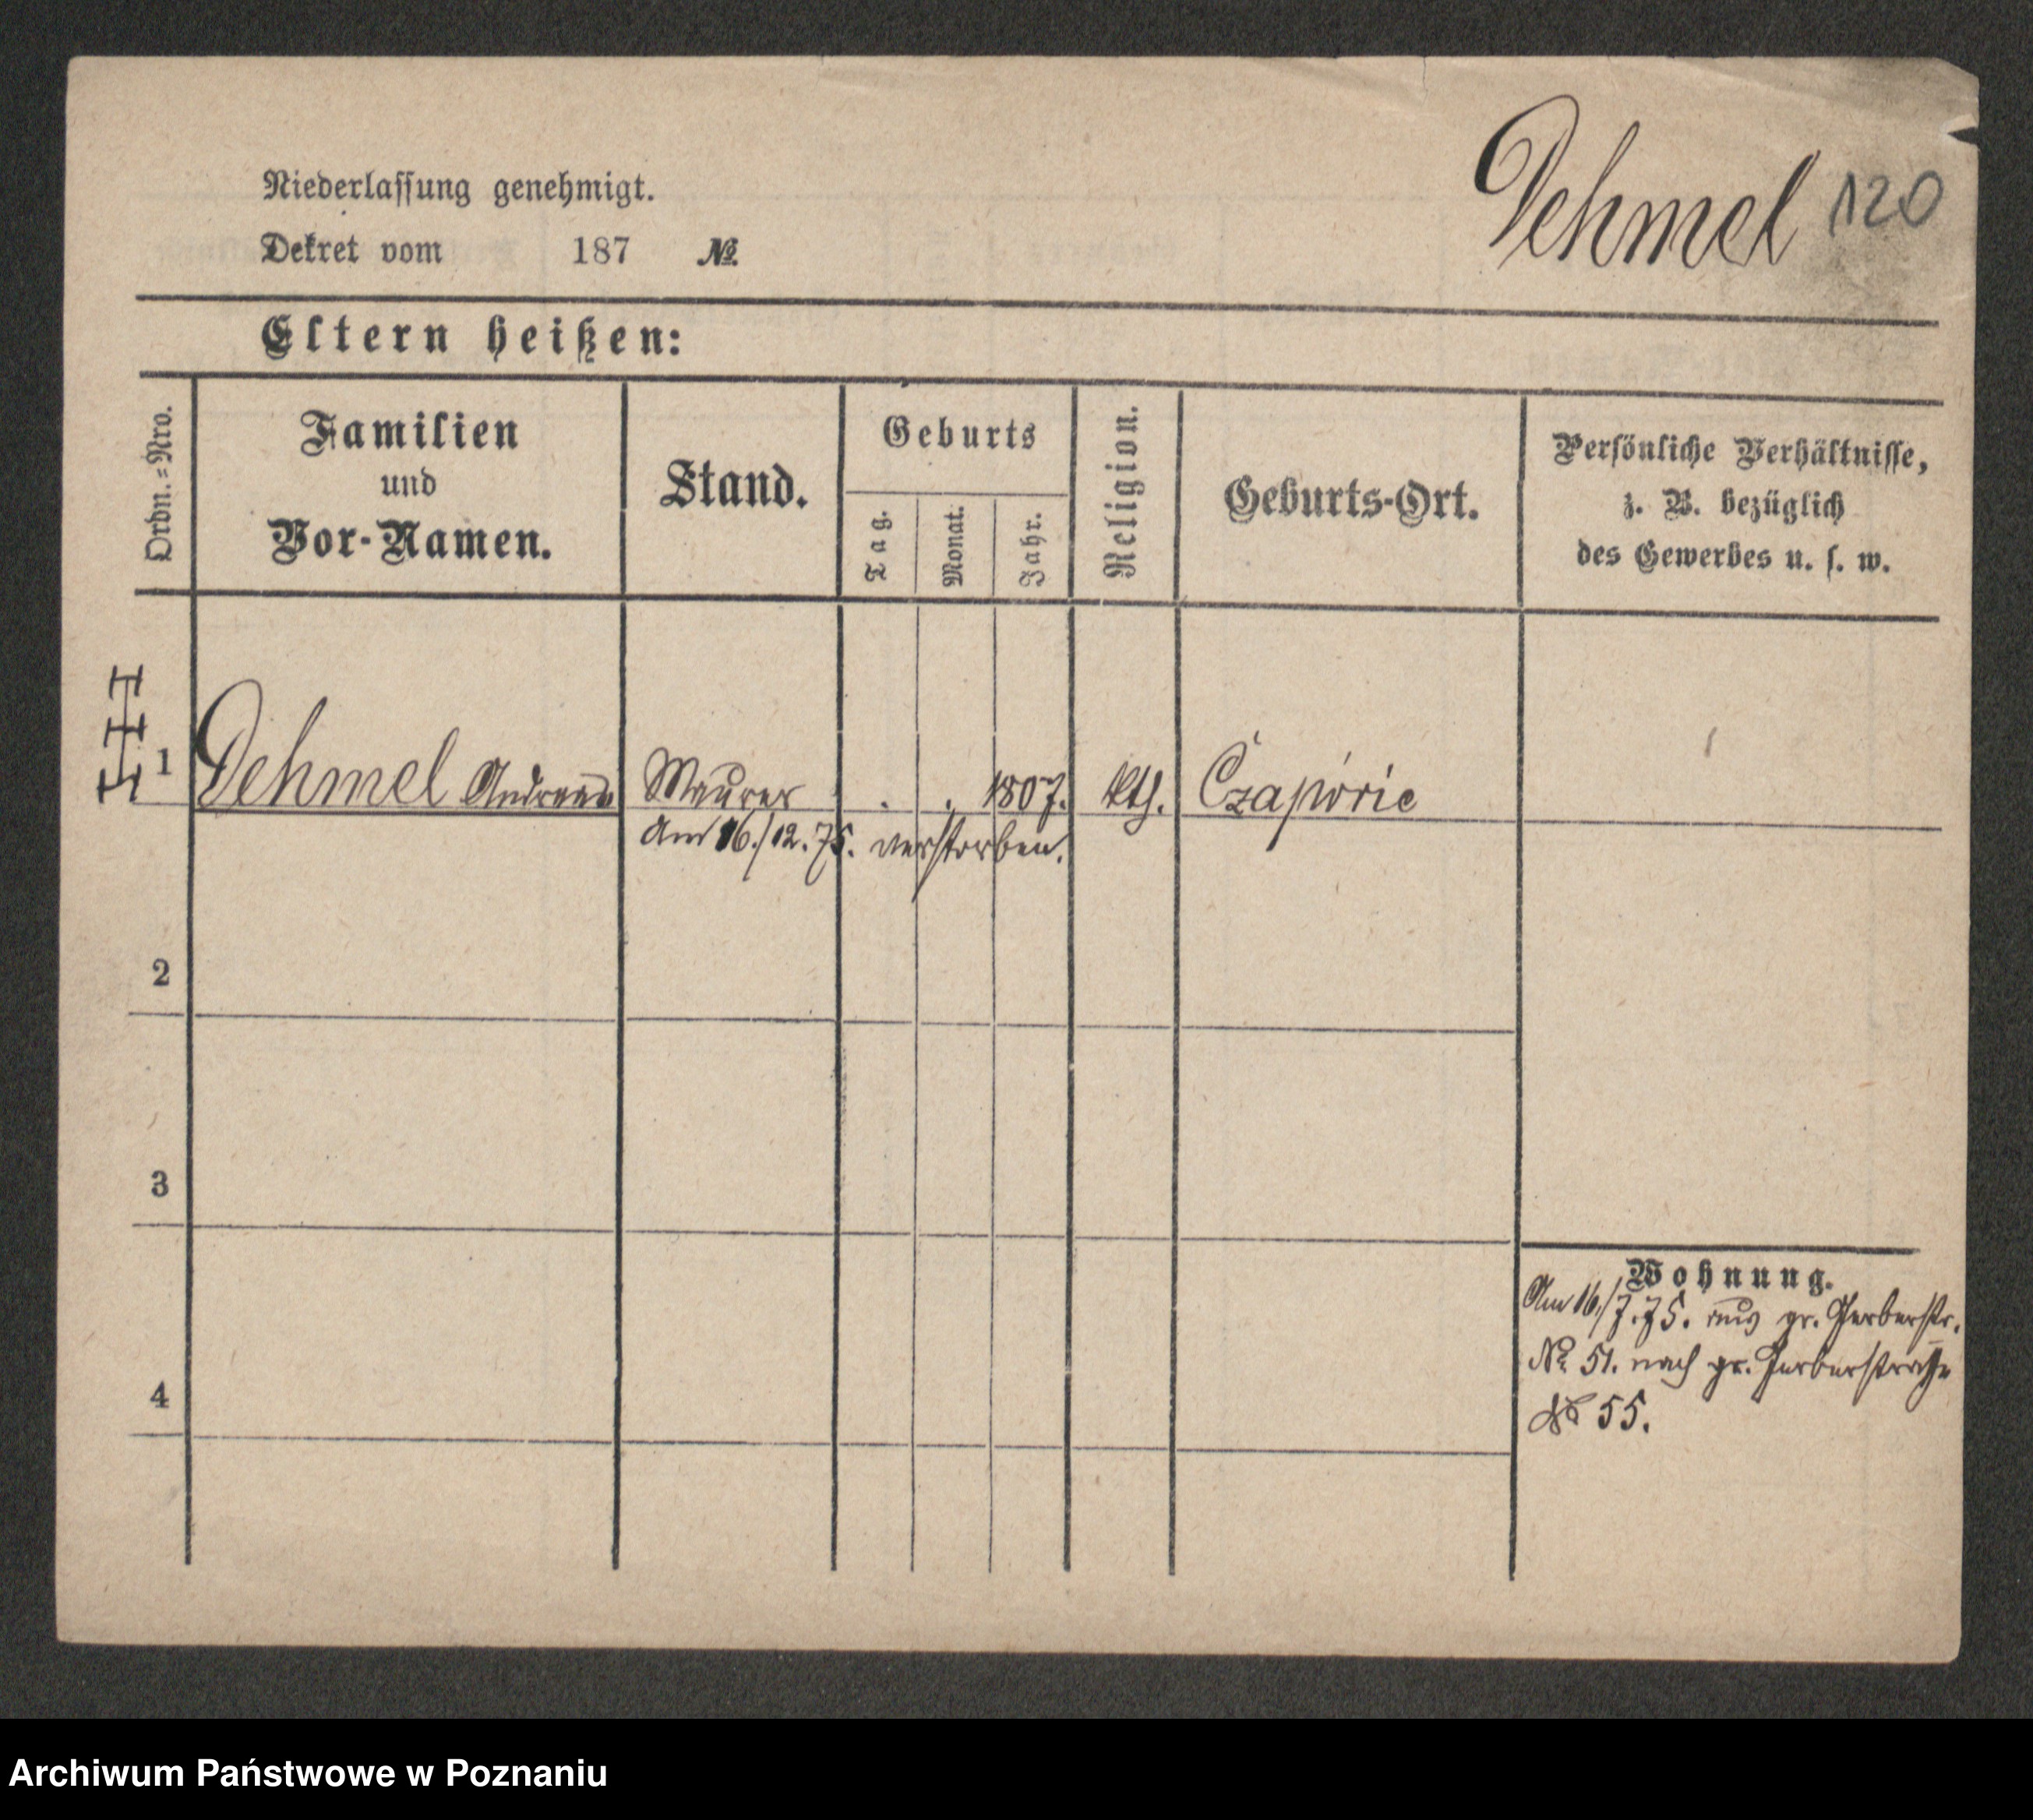 Dehmel 120
Niederlassung genehmigt.
Dekret vom 187 №
Eltern heißen:
Ordn.=Nro.
Familien
und
Vor-Namen.
Stand.
Geburts
Tag.
Monat.
Jahr.
Religion.
Geburts-Ort.
Persönliche Verhältnisse,
z. B. bezüglich
des Gewerbes u. s. w.
1 Dehmel Andreas Maurer . . 1807. kth.
Am 16./12.75. verstorben.
2
3
4
Wohnung.
Am 16/7.75. aus gr. Gerberstr.
No 51. nach gr. Gerberstraße
No 55.
Archiwum Państwowe w Poznaniu